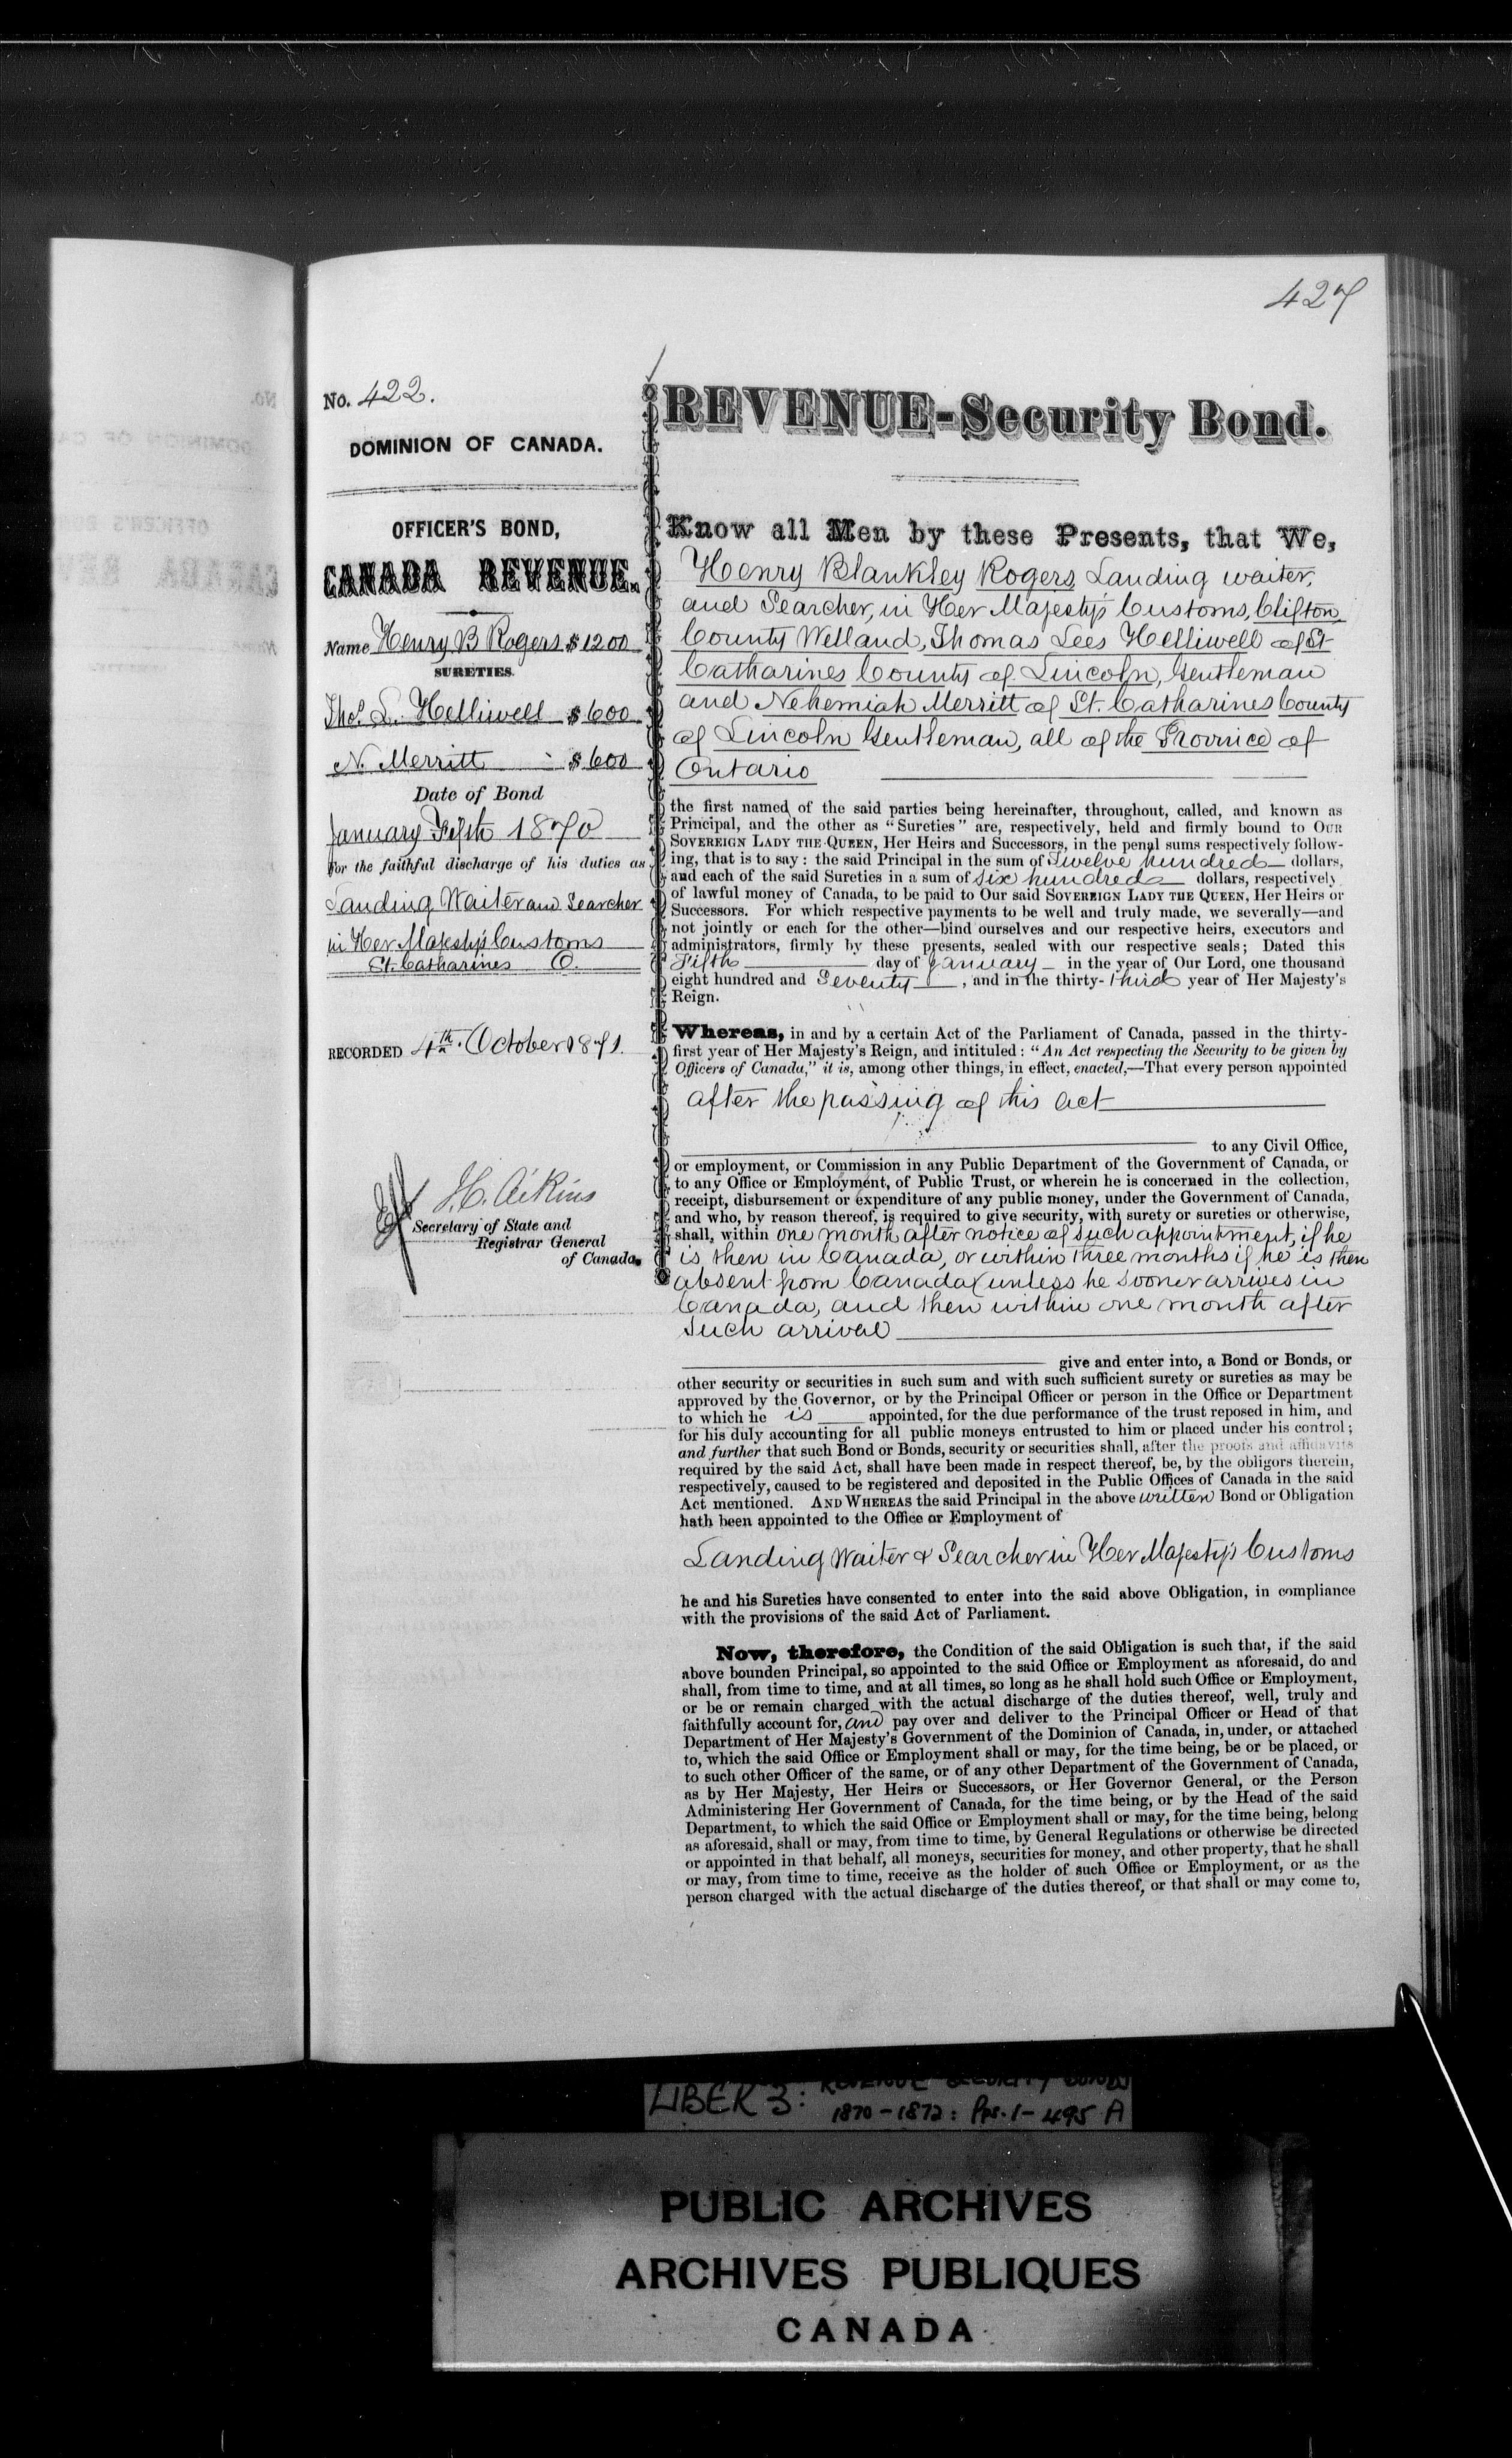 427
No. 422.
DOMINION OF CANADA.
OFFICER'S BOND,
CANADA REVENUE.
Name Henry B Rogers $1200
SURETIES.
Thos. L. Helliwell $600
N. Merritt $600
Date of Bond
January Fifth 1870
For the faithful discharge of his duties as
Landing Waiter and Searcher
in Her Majesty's Customs
St. Catharines O.
RECORDED 4th. October 1871.
J. C. Aikins
Secretary of State and
Registrar General
of Canada.
REVENUE-Security Bond.
Know all Men by these Presents, that We,
Henry Blankley Rogers, Landing waiter,
and Searcher, in Her Majesty's Customs, Clifton,
County Welland, Thomas Lees Helliwell of St
Catharines County of Lincoln, Gentleman
and Nehemiah Merritt of St. Catharines County
of Lincoln Gentleman, all of the Province of
Ontario
the first named of the said parties being hereinafter, throughout, called, and known as
Principal, and the other as "Sureties" are, respectively, held and firmly bound to OUR
SOVEREIGN LADY THE QUEEN, Her Heirs and Successors, in the penal sums respectively follow-
ing, that is to say: the said Principal in the sum of Twelve hundred dollars,
and each of the said Sureties in a sum of six hundred dollars, respectively
of lawful money of Canada, to be paid to Our said SOVEREIGN LADY THE QUEEN, Her Heirs or
Successors. For which respective payments to be well and truly made, we severally—and
not jointly or each for the other—bind ourselves and our respective heirs, executors and
administrators, firmly by these presents, sealed with our respective seals; Dated this
Fifth day of January in the year of Our Lord, one thousand
eight hundred and Seventy, and in the thirty-third year of Her Majesty's
Reign.
Whereas, in and by a certain Act of the Parliament of Canada, passed in the thirty-
first year of Her Majesty's Reign, and intituled: "An Act respecting the Security to be given by
Officers of Canada," it is, among other things, in effect, enacted,—That every person appointed
after the passing of this act
to any Civil Office,
or employment, or Commission in any Public Department of the Government of Canada, or
to any Office or Employment, of Public Trust, or wherein he is concerned in the collection,
receipt, disbursement or expenditure of any public money, under the Government of Canada,
and who, by reason thereof, is required to give security, with surety or sureties or otherwise,
shall, within one month after notice of such appointment, if he
is then in Canada, or within three months if he is then
absent from Canada (unless he sooner arrives in
Canada, and then within one month after
such arrival
give and enter into, a Bond or Bonds, or
other security or securities in such sum and with such sufficient surety or sureties as may be
approved by the Governor, or by the Principal Officer or person in the Office or Department
to which he is appointed, for the due performance of the trust reposed in him, and
for his duly accounting for all public moneys entrusted to him or placed under his control;
and further that such Bond or Bonds, security or securities shall, after the proofs and affidavits
required by the said Act, shall have been made in respect thereof, be, by the obligors therein,
respectively, caused to be registered and deposited in the Public Offices of Canada in the said
Act mentioned. AND WHEREAS the said Principal in the above written Bond or Obligation
hath been appointed to the Office or Employment of
Landing Waiter & Searcher in Her Majesty's Customs
he and his Sureties have consented to enter into the said above Obligation, in compliance
with the provisions of the said Act of Parliament.
Now, therefore, the Condition of the said Obligation is such that, if the said
above bounden Principal, so appointed to the said Office or Employment as aforesaid, do and
shall, from time to time, and at all times, so long as he shall hold such Office or Employment,
or be or remain charged with the actual discharge of the duties thereof, well, truly and
faithfully account for, and pay over and deliver to the Principal Officer or Head of that
Department of Her Majesty's Government of the Dominion of Canada, in, under, or attached
to, which the said Office or Employment shall or may, for the time being, be or be placed, or
to such other Officer of the same, or of any other Department of the Government of Canada,
as by Her Majesty, Her Heirs or Successors, or Her Governor General, or the Person
Administering Her Government of Canada, for the time being, or by the Head of the said
Department, to which the said Office or Employment shall or may, for the time being, belong
as aforesaid, shall or may, from time to time, by General Regulations or otherwise be directed
or appointed in that behalf, all moneys, securities for money, and other property, that he shall
or may, from time to time, receive as the holder of such Office or Employment, or as the
person charged with the actual discharge of the duties thereof, or that shall or may come to,
LIBER 3: REVENUE SECURITY BONDS
1870-1872: Pps. 1-495 A
PUBLIC ARCHIVES
ARCHIVES PUBLIQUES
CANADA